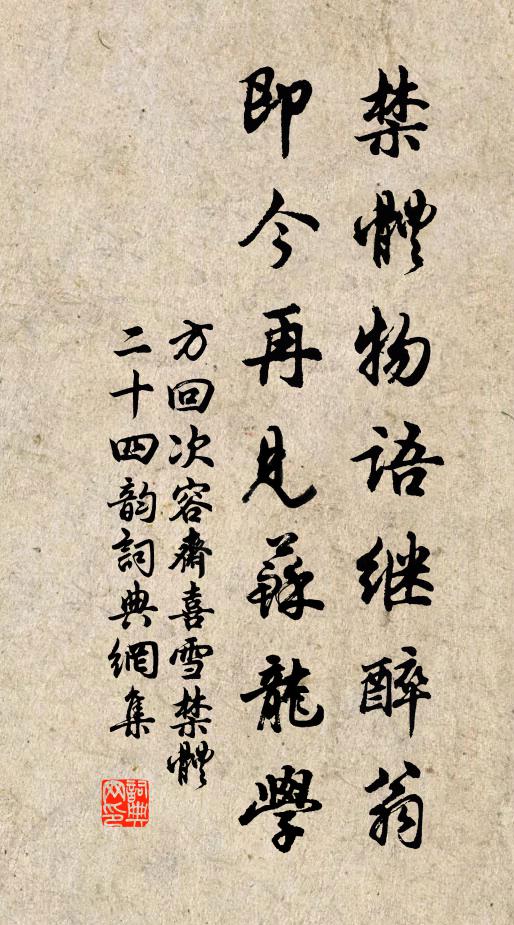 禁體物語继醉翁
即今再見蘇龍學
方回次容齋喜雪禁體
二十四韵詞典網集
詞典网印